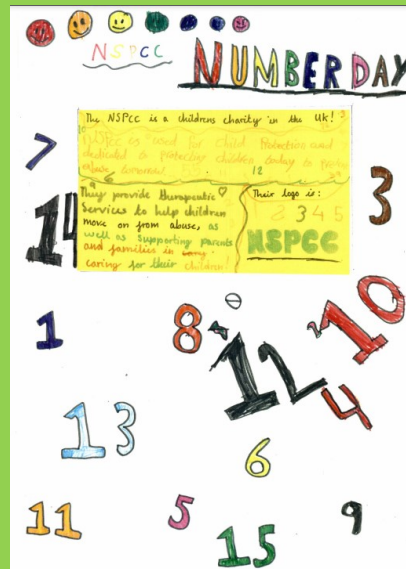 NSPCC NUMBER DAY
The NSPCC is a childrens charity in the UK!
NSPCC is used for child Protection and
dedicated to protecting children today to
abuse
12
They provide therapeutic
Services to help children
move on from abuse, as
well as supporting parents
and families in
caring for their children!
Their logo is:
2 3 4 5
NSPCC
7
14
3
1
8
12
10
4
13
6
11
5
15
9